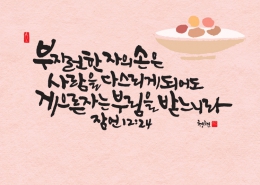 부지런한 자의 손은
사람을 다스리게 되어도
게으른 자는 부림을 받느니라
잠언 12:24